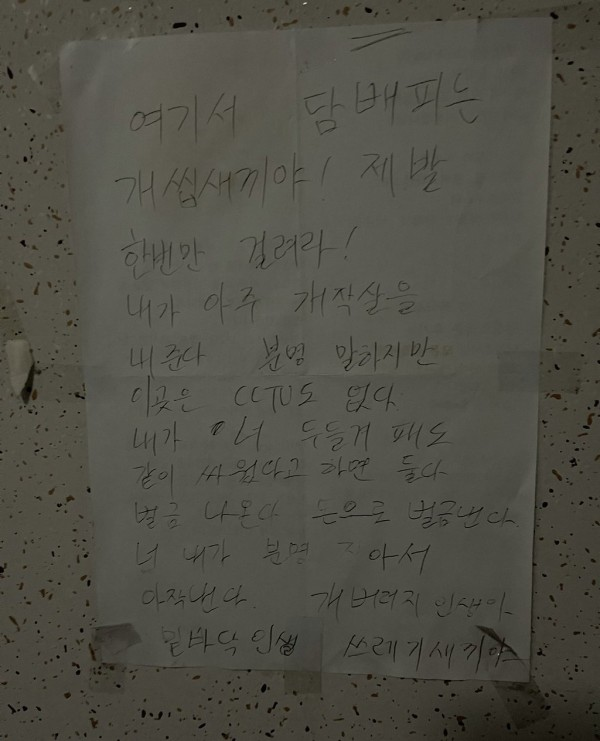 여기서 담배피는
개씹새끼야! 제발
한번만 걸려라!
내가 아주 개작살을
내준다 분명 말하지만
이곳은 CCTV도 없다.
내가 너 두들겨 패도
같이 싸웠다고 하면 둘다
벌금 나온다 돈으로 벌금낸다.
넌 내가 분명 잡아서
아작낸다. 개버러지 인생아.
밑바닥인생 쓰레기새끼야